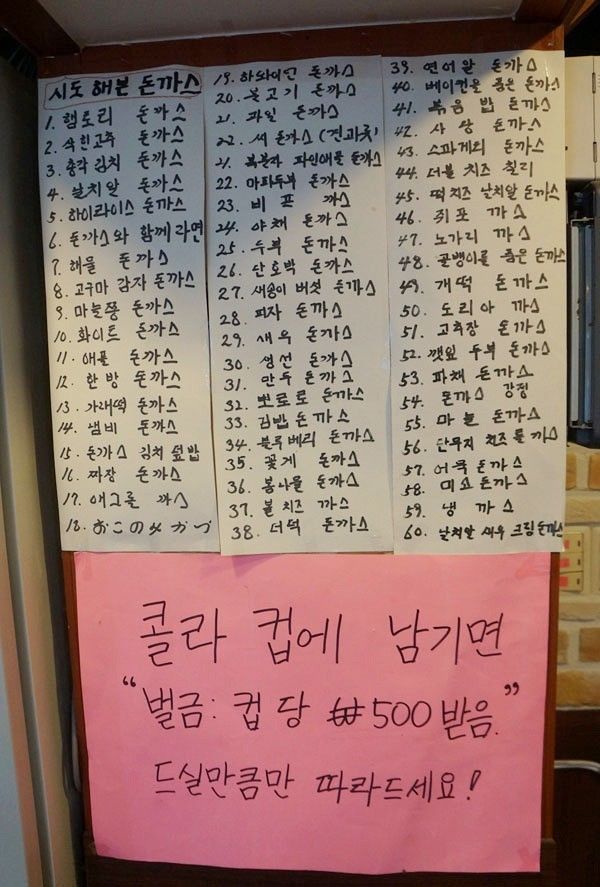 시도 해본 돈까스
1. 햄토리 돈까스
2. 삭힌고추 돈까스
3. 총각김치 돈까스
4. 날치알 돈까스
5. 하이라이스 돈까스
6. 돈까스와 함께 라면
7. 해물 돈까스
8. 고구마 감자 돈까스
9. 마늘쫑 돈까스
10. 화이트 돈까스
11. 애플 돈까스
12. 한방 돈까스
13. 가래떡 돈까스
14. 냄비 돈까스
15. 돈까스 김치 덮밥
16. 짜장 돈까스
17. 에그롤 까스
18. おこのみかつ
19. 하와이안 돈까스
20. 불고기 돈까스
21. 파일 돈까스
22. 씨 돈까스 (견과류)
21. 복분자 파인애플 돈까스
22. 마파두부 돈까스
23. 비프 까스
24. 야채 돈까스
25. 두부 돈까스
26. 단호박 돈까스
27. 새송이 버섯 돈까스
28. 피자 돈까스
29. 새우 돈까스
30. 생선 돈까스
31. 만두 돈까스
32. 뽀로로 돈까스
33. 김밥 돈까스
34. 블루베리 돈까스
35. 꽃게 돈까스
36. 봄나물 돈까스
37. 볼 치즈 까스
38. 더덕 돈까스
39. 연어알 돈까스
40. 베이컨을 품은 돈까스
41. 볶음밥 돈까스
42. 사상 돈까스
43. 스파게티 돈까스
44. 더블 치즈 칠리
45. 떡 치즈 날치알 돈까스
46. 쥐포 까스
47. 노가리 까스
48. 골뱅이를 품은 돈까스
49. 개떡 돈까스
50. 도리아 까스
51. 고추장 돈까스
52. 깻잎 두부 돈까스
53. 파채 돈까스
54. 돈까스 강정
55. 마늘 돈까스
56. 단무지 치즈 롤 까스
57. 어묵 돈까스
58. 미소 돈까스
59. 냉 까스
60. 날치알 새우 크림 돈까스
콜라 컵에 남기면
“벌금: 컵 당 ₩500 받음.”
드실만큼만 따라드세요!